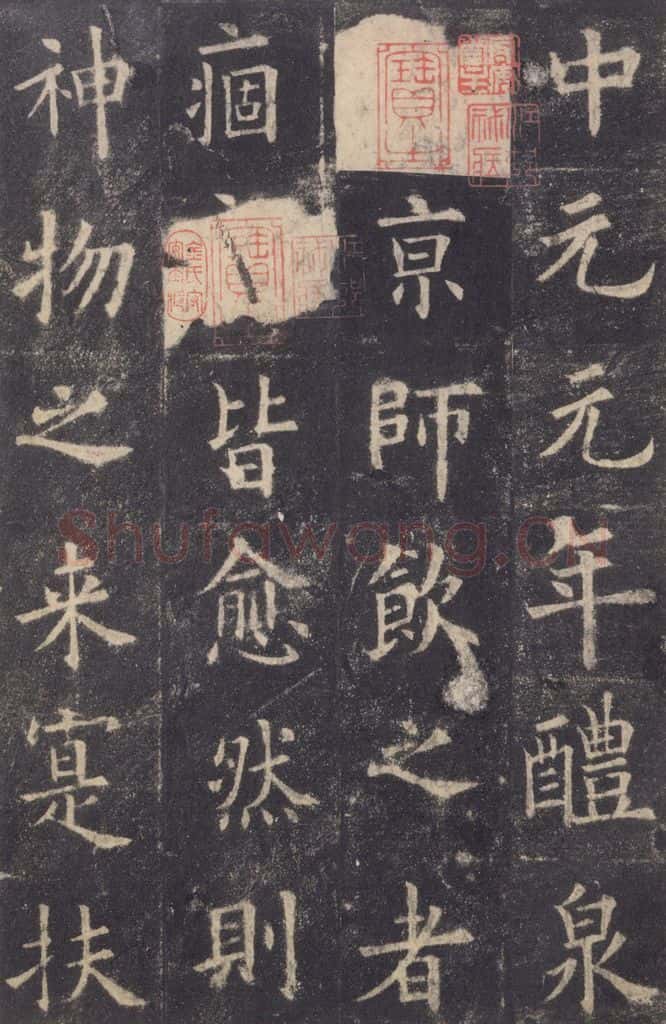 中元元年醴泉
亰師飲之者
痼皆愈然則
神物之来寔扶
Shufawang.CN